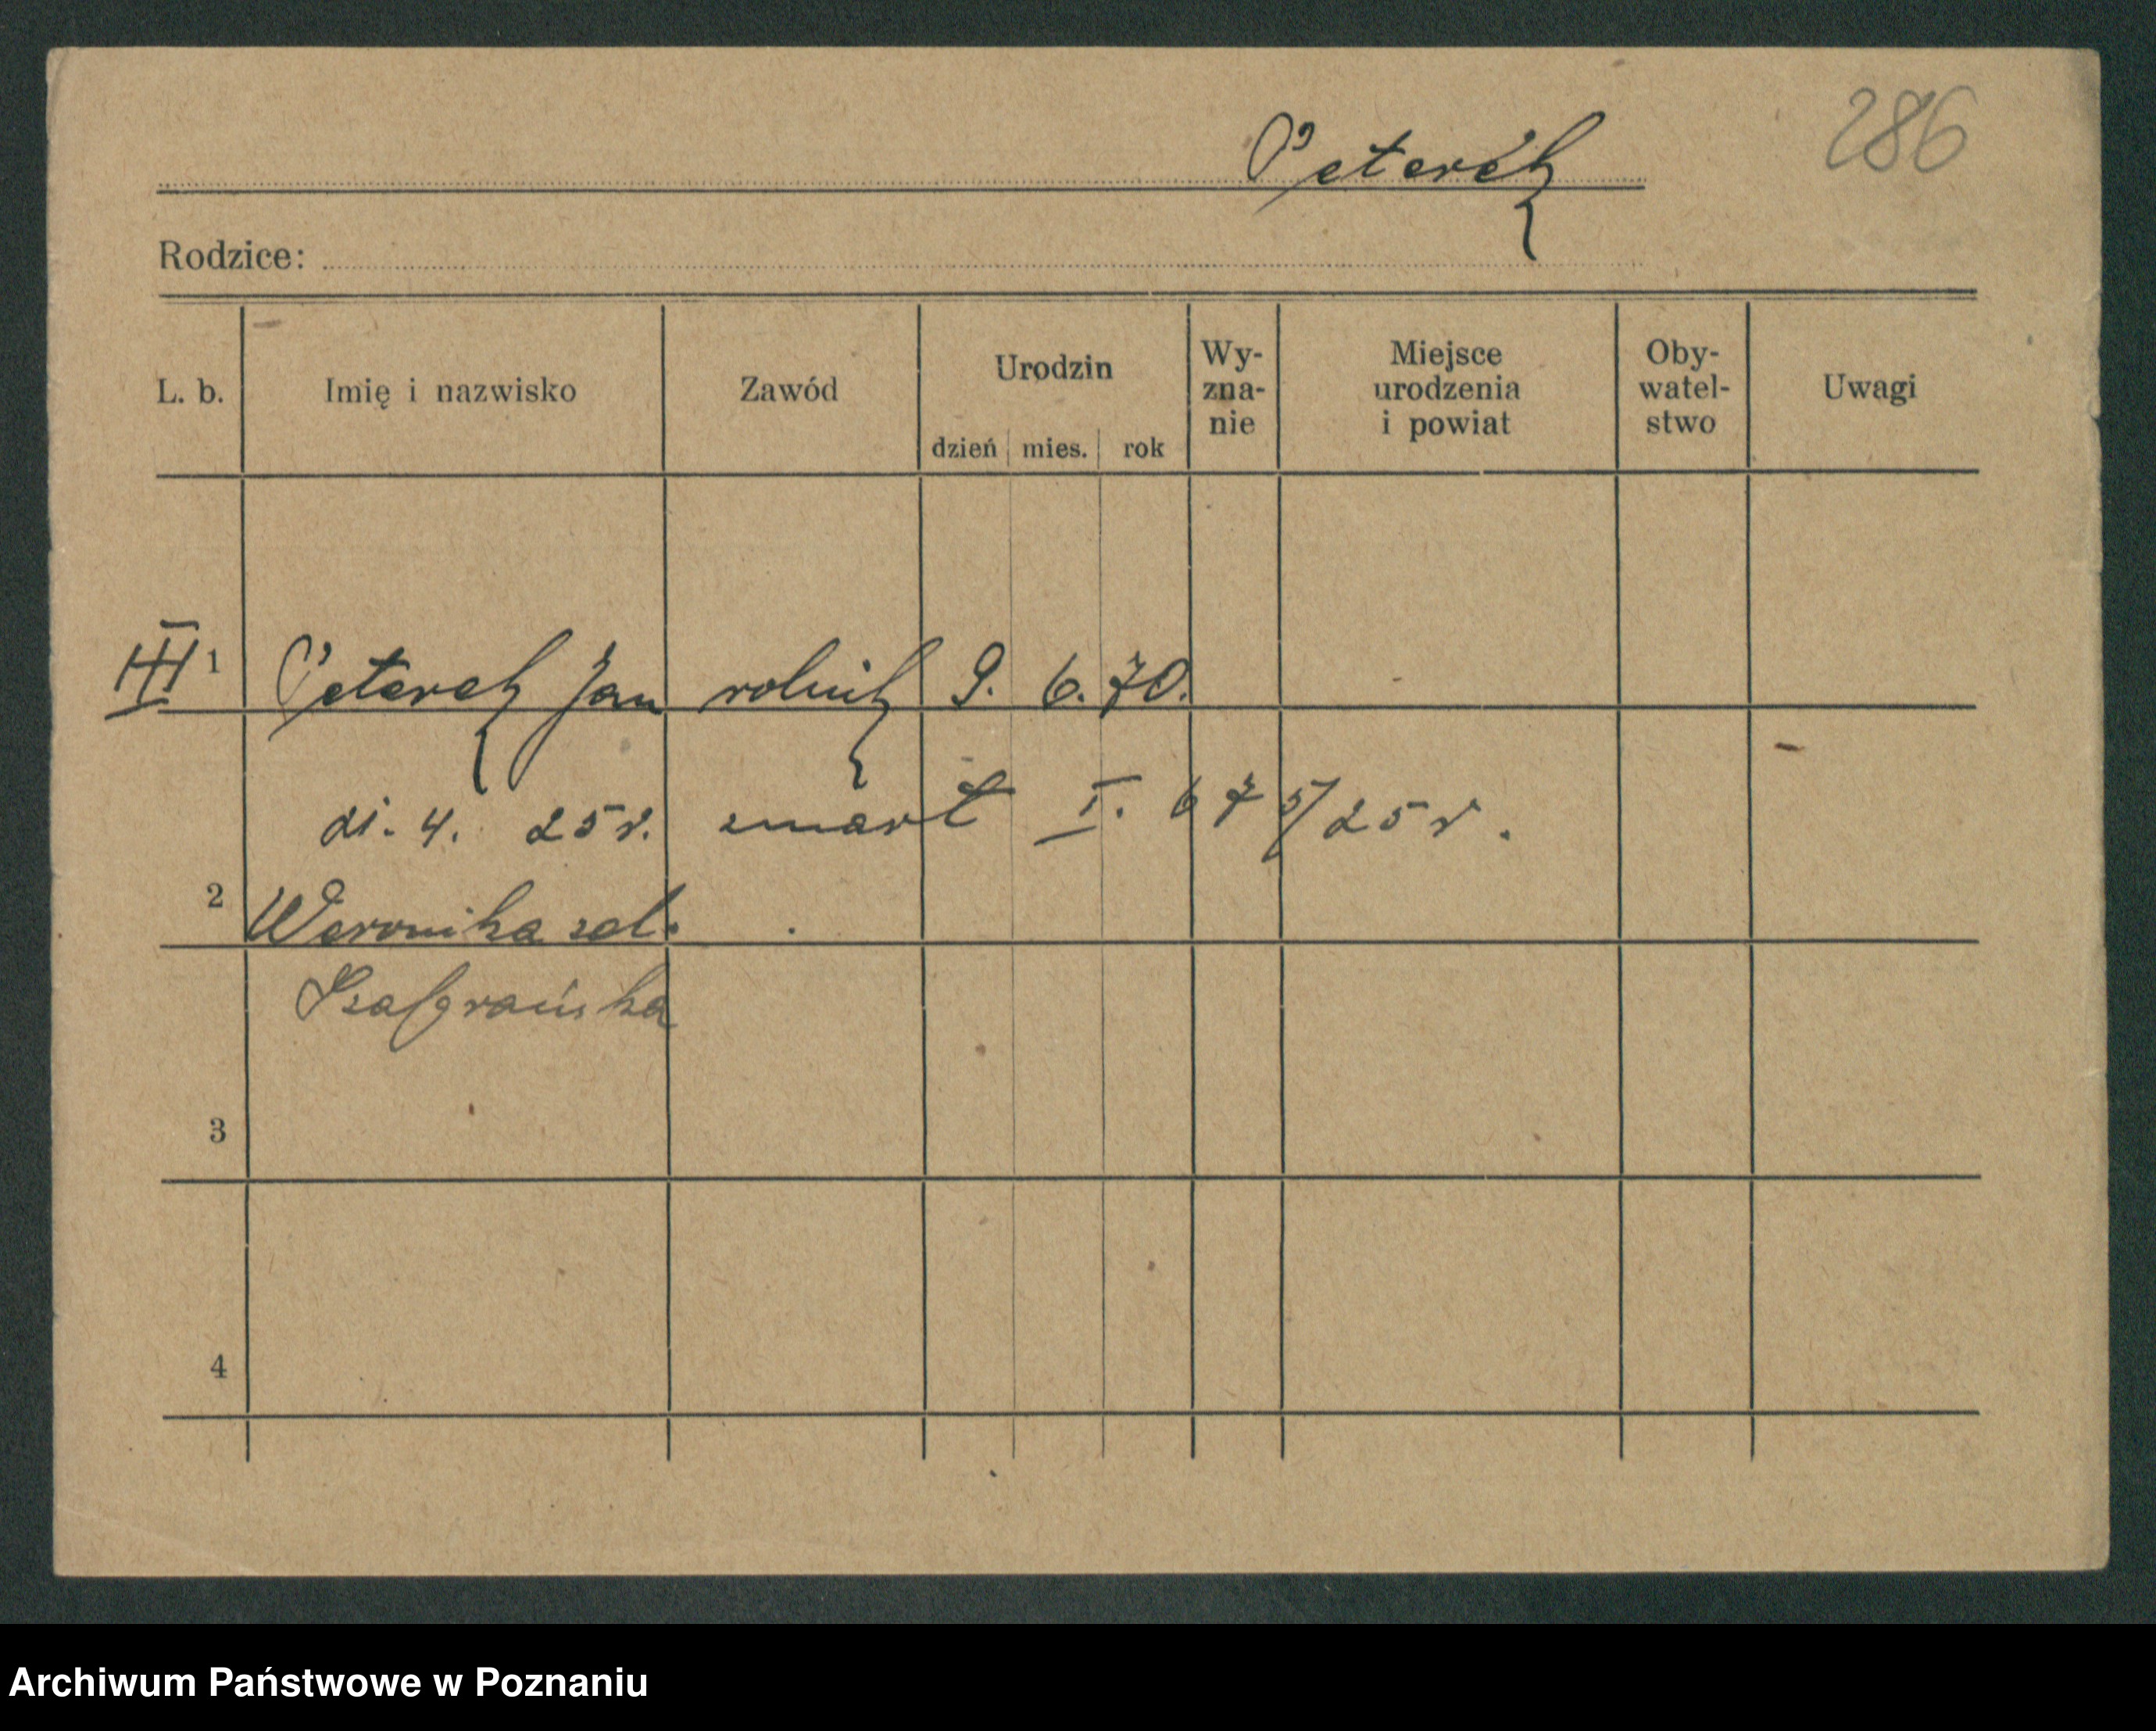 286
Peterek
Rodzice:
L. b. Imię i nazwisko Zawód Urodzin dzień mies. rok Wy-zna-nie Miejsce urodzenia i powiat Oby-watel-stwo Uwagi
III 1 Peterek Jan rolnik 9. 6. 70.
4. 25 r. zmart I. 675/25 r.
2 Weronika
3
4
Archiwum Państwowe w Poznaniu